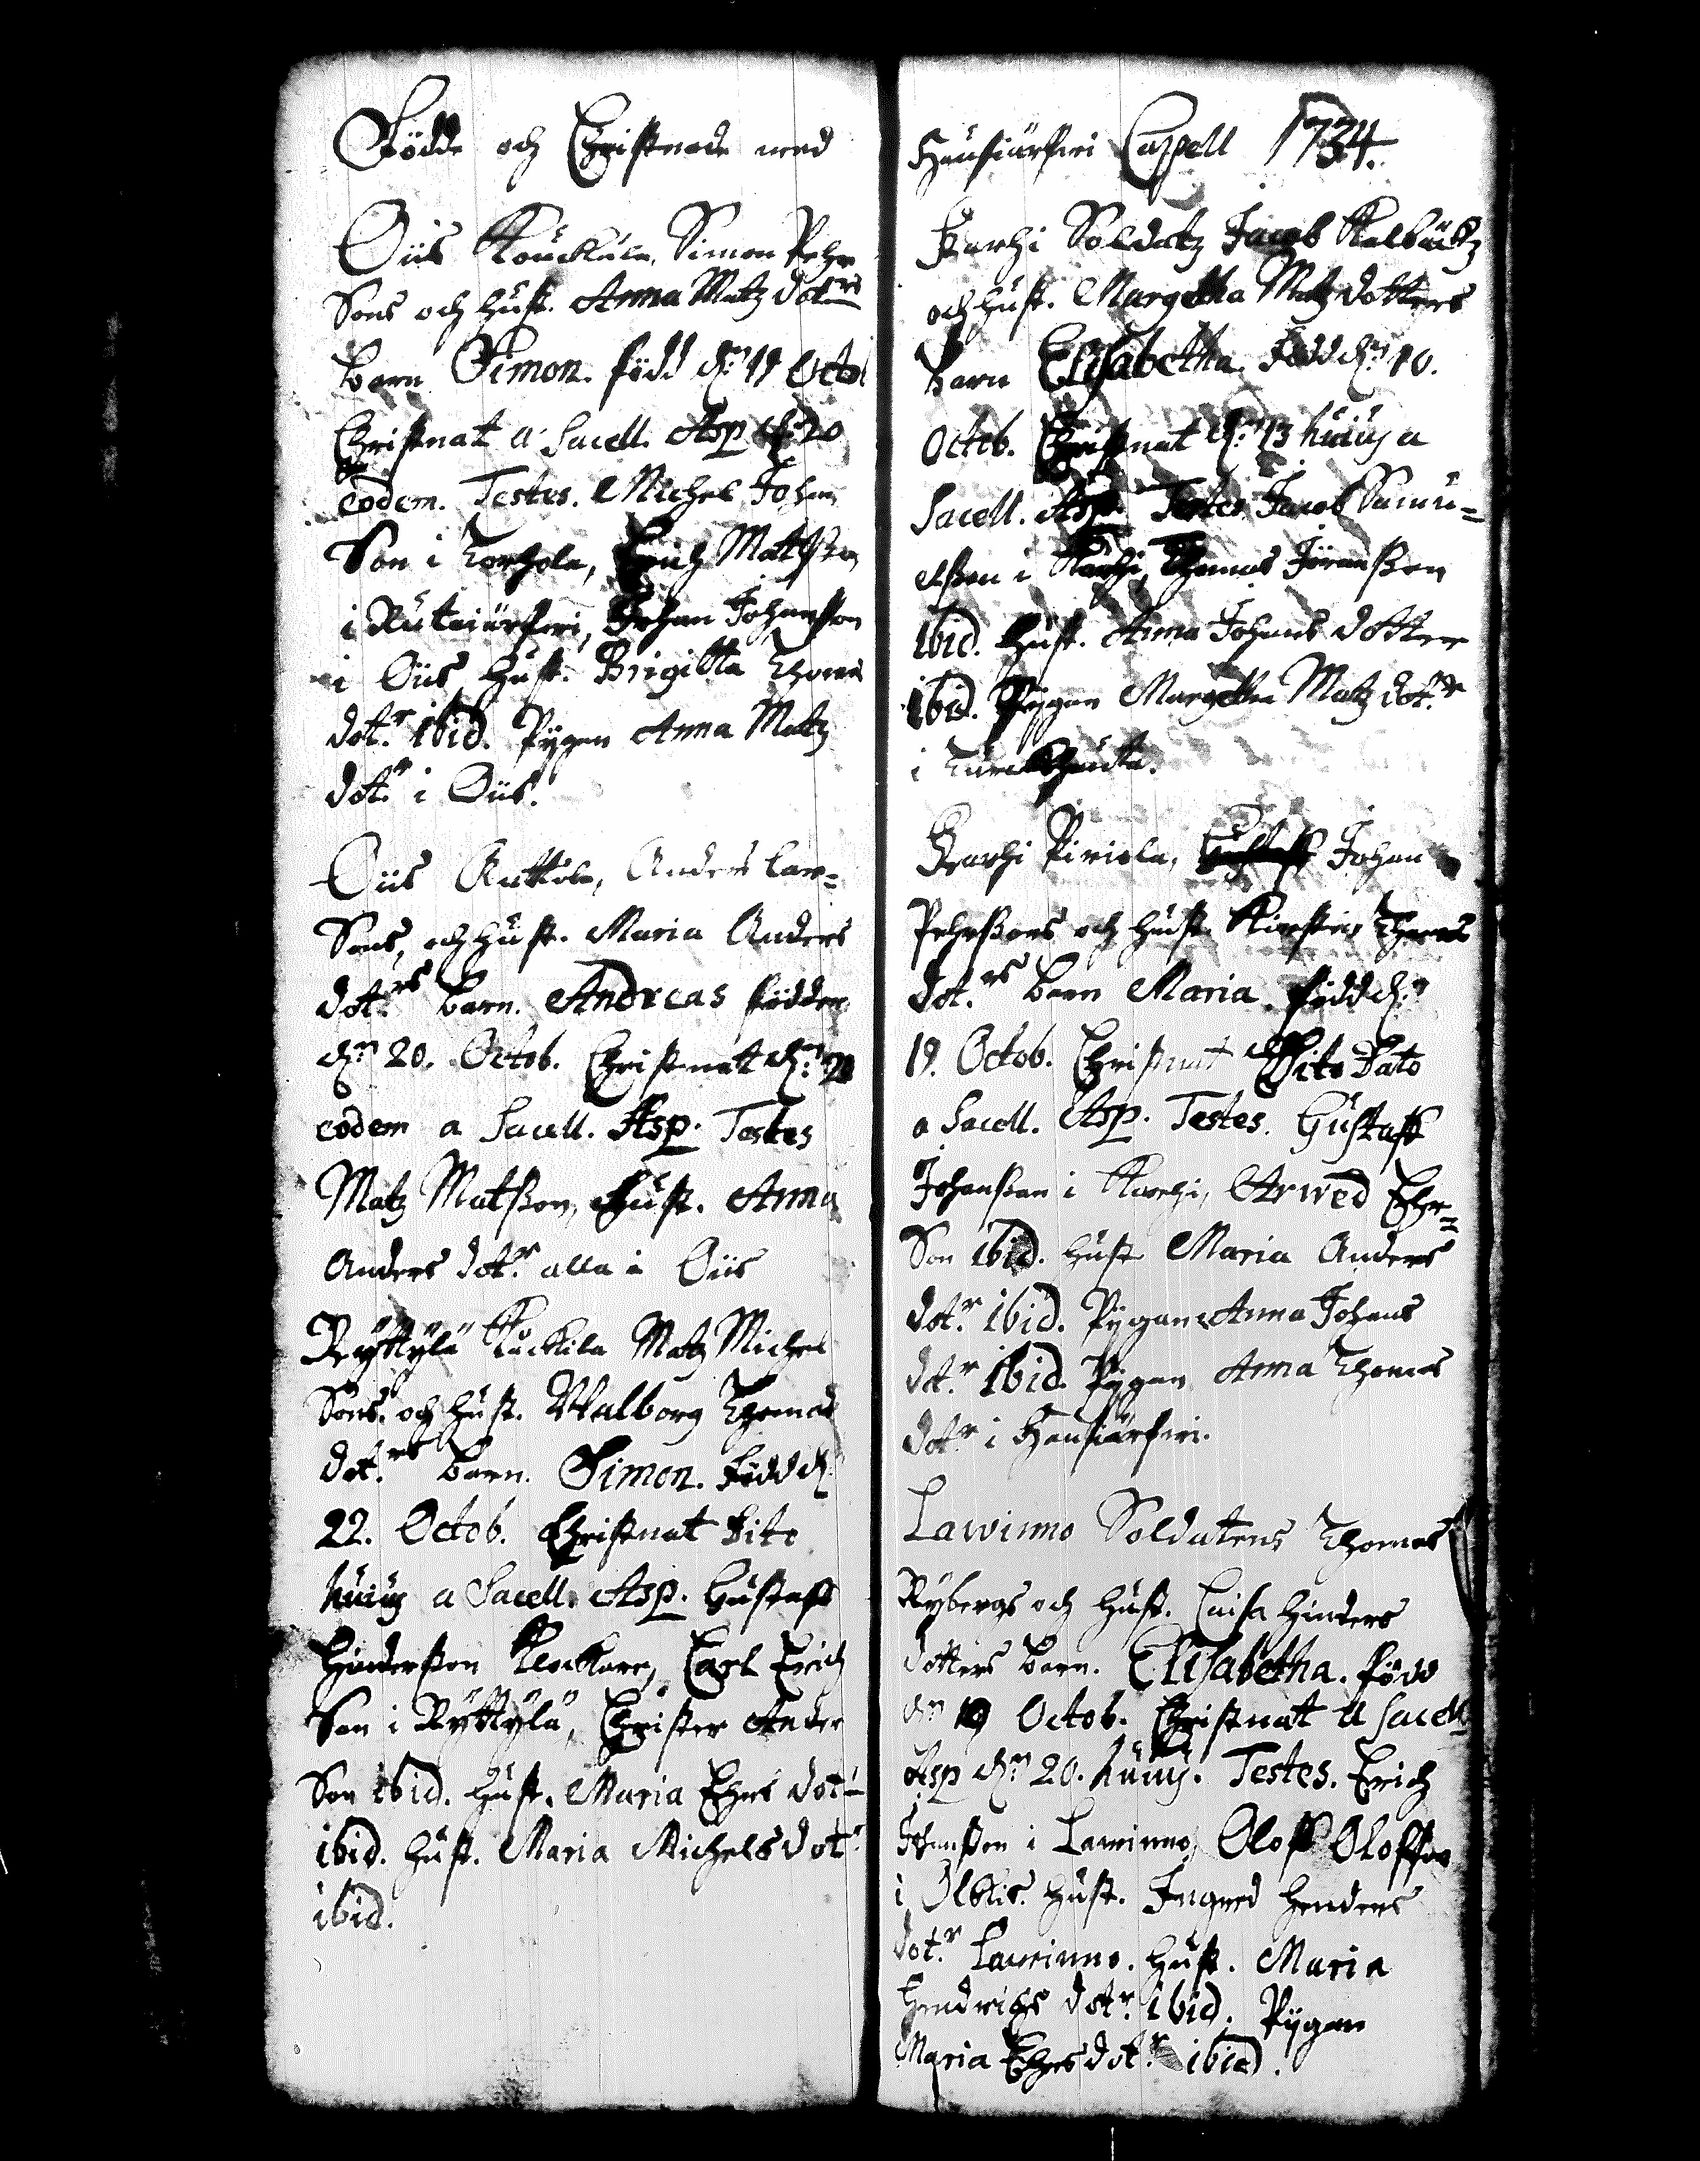 Födde och Christnade wed
Öiis Kouckula, Simon Pehr
Sons och Hust. Anna Matz dotrs
barn Simon. född dn 17 Octob
Christnat a Sacell. Asp dn 20
eodem. Testes. Michel Johan
Son i Torhola, Erich Mattsson
i Rutaiärfwi, Johan Johansson
i Öiis Hust. Brigitta Thomas
dotr ibid. Pygan Anna Matz
dotr i Öiis.
Öiis Anttila, Anders Lar=
Sons, och Hust. Maria Anders
dotrs barn. Andreas födder
dn 20. Octob. Christnat dn 20
eodem a Sacell. Asp. Testes
Matz Matsson, Hust. Anna
Anders dotr alla i Öiis
Ryttylä Kuckila Matz Michel
Sons. och Hust. Walborg Thomas
dotrs barn. Simon. född dn
22. Octob. Christnat dito
huius a Sacell. Asp. Gustaff
Hindersson Klockare, Carl Erich
Son i Ryttylä, Christer Ander
Son ibid. Hust. Maria Ehrs dotr
ibid. Hust. Maria Michels dotr
ibid.
Hausiärfwi Cappell 1734.
Karhi Soldatz Jacob Kalbäckz
och Hust. Margetha Matz dotters
barn Elisabetha. Född dn 10.
Octob. Christnat dn 13 huius a
Sacell. Asp. Testes Jacob Samu=
elsson i Karhi, Thomas Jöransson
ibid. Hust. Anna Johans dotter
ibid. Pygan Margetha Matz dotr
i
Karhi Piriola, Johan
Pehrssons och Hust. Kirstin Thomas
dotrs barn Maria. född dn
19. Octob. Christnat Dito Dato
a Sacell. Asp. Testes. Gustaff
Johansson i Karhi, Arwed Ehr=
Son ibid. Hust Maria Anders
dotr ibid. Pygan Anna Johans
dotr ibid. Pygan Anna Thomas
dotr i Hausiärfwi.
Lawinno Soldatens Thomas
Rybergs och Hust. Caisa Hinders
dotters barn. Elisabetha. född
dn 19 Octob. Christnat a Sacell
Asp dn 20. huius. Testes. Erich
Johansson i Lawinno, Oloff Olofsson
i Ölkis. Hust. Ingred Henders
dotr Lawinno. Hust. Maria
Hendrichs dotr ibid. Pygan
Maria Ehrs dotr ibid.